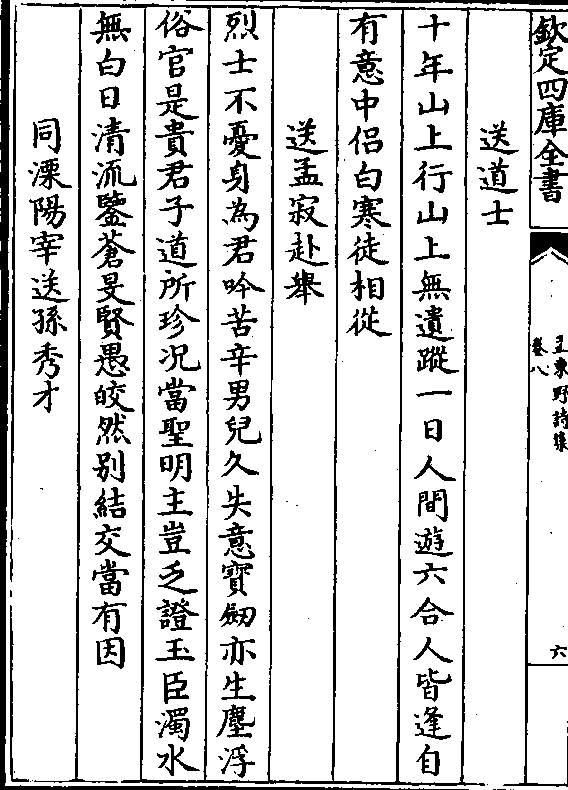 欽定四庫全書
孟東野詩集
卷八
六
送道士
十年山上行山上無遺蹤一日人間遊六合人皆逢自
有意中侣白寒徒相從
送孟寂赴舉
烈士不憂身為君吟苦辛男兒久失意寶劒亦生塵浮
俗官是貴君子道所珍况當聖明主豈乏證玉臣濁水
無白日清流鑒蒼旻賢愚皎然别結交當有因
同溧陽宰送孫秀才